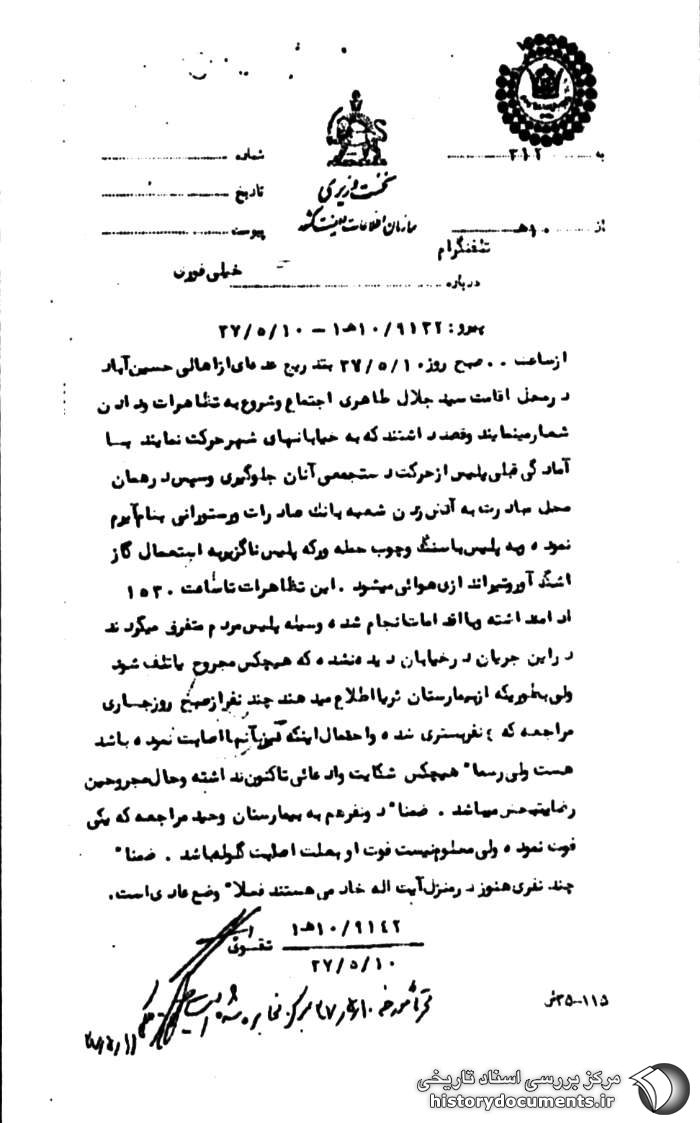 به ۳۱۲ شماره
نخست وزیری تاریخ
از ۱۰ هـ سازمان اطلاعات و امنیت کشور پیوست
تلفنگرام
درباره خیلی فوری
پیرو : ۱۰/۹۱۳۲هـ۱ – ۳۷/۵/۱۰
ازساعت ۰۰ صبح روز ۳۷/۵/۱۰ بتدریج عده ای ازاهالی حسین آباد
درمحل اقامت سید جلال طاهری اجتماع وشروع به تظاهرات ودادن
شعارمینمایند وقصد داشتند که به خیابانهای شهرحرکت نمایند بسا
آمادگی قبلی پلیس ازحرکت دستجمعی آنان جلوگیری وسپس درهمان
محل مبادرت به آتش زدن شعبه بانك صادرات ورستورانی بنام آبرم
نموده وبه پلیس باسنگ وچوب حمله ورکه پلیس ناگزیربه استعمال گاز
اشك آوروتیراندازی هوائی میشود . این تظاهرات تاساعت ۱۵۳۰
ادامه داشته وبااقدامات انجام شده وسیله پلیس مردم متفرق میگردند
دراین جریان درخیابان دیده نشده که هیچکس مجروح یاتلف شود
ولی بطوریکه ازبیمارستان ثریااطلاع میدهند چند نفرازصبح روزجاری
مراجعه که ٤ نفربستری شده واحتمال اینکه تیربآنها اصابت نموده باشد
هست ولی رسما" هیچکس شکایت وادعائی تاکنون نداشته وحال مجروحین
رضایتبخش میباشد . ضمنا" دونفرهم به بیمارستان وحید مراجعه که یکی
فوت نموده ولی معلوم نیست فوت اوبعلت اصابت گلوله باشد . ضمنا"
چند نفری هنوز درمنزل آیت اله خادمی هستند فعلا" وضع عادی است.
۱۰/۹۱٤۲هـ۱
تقوی
۳۷/۵/۱۰
۳۵-۱۱۵ش
مرکز بررسی اسناد تاریخی
historydocuments.ir